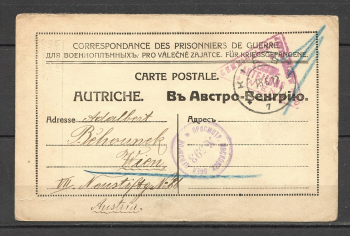 CORRESPONDANCE DES PRISONNIERS DE GUERRE.
ДЛЯ ВОЕННОПЛѢННЫХЪ. PRO VÁLEČNÉ ZAJATCE. FÜR KRIEGSGEFANGENE.
CARTE POSTALE.
AUTRICHE. Въ Австро-Венгрію.
Adresse Adalbert Адресъ
Běhounek
Wien,
VII. Neustiftg. N.
Austria.